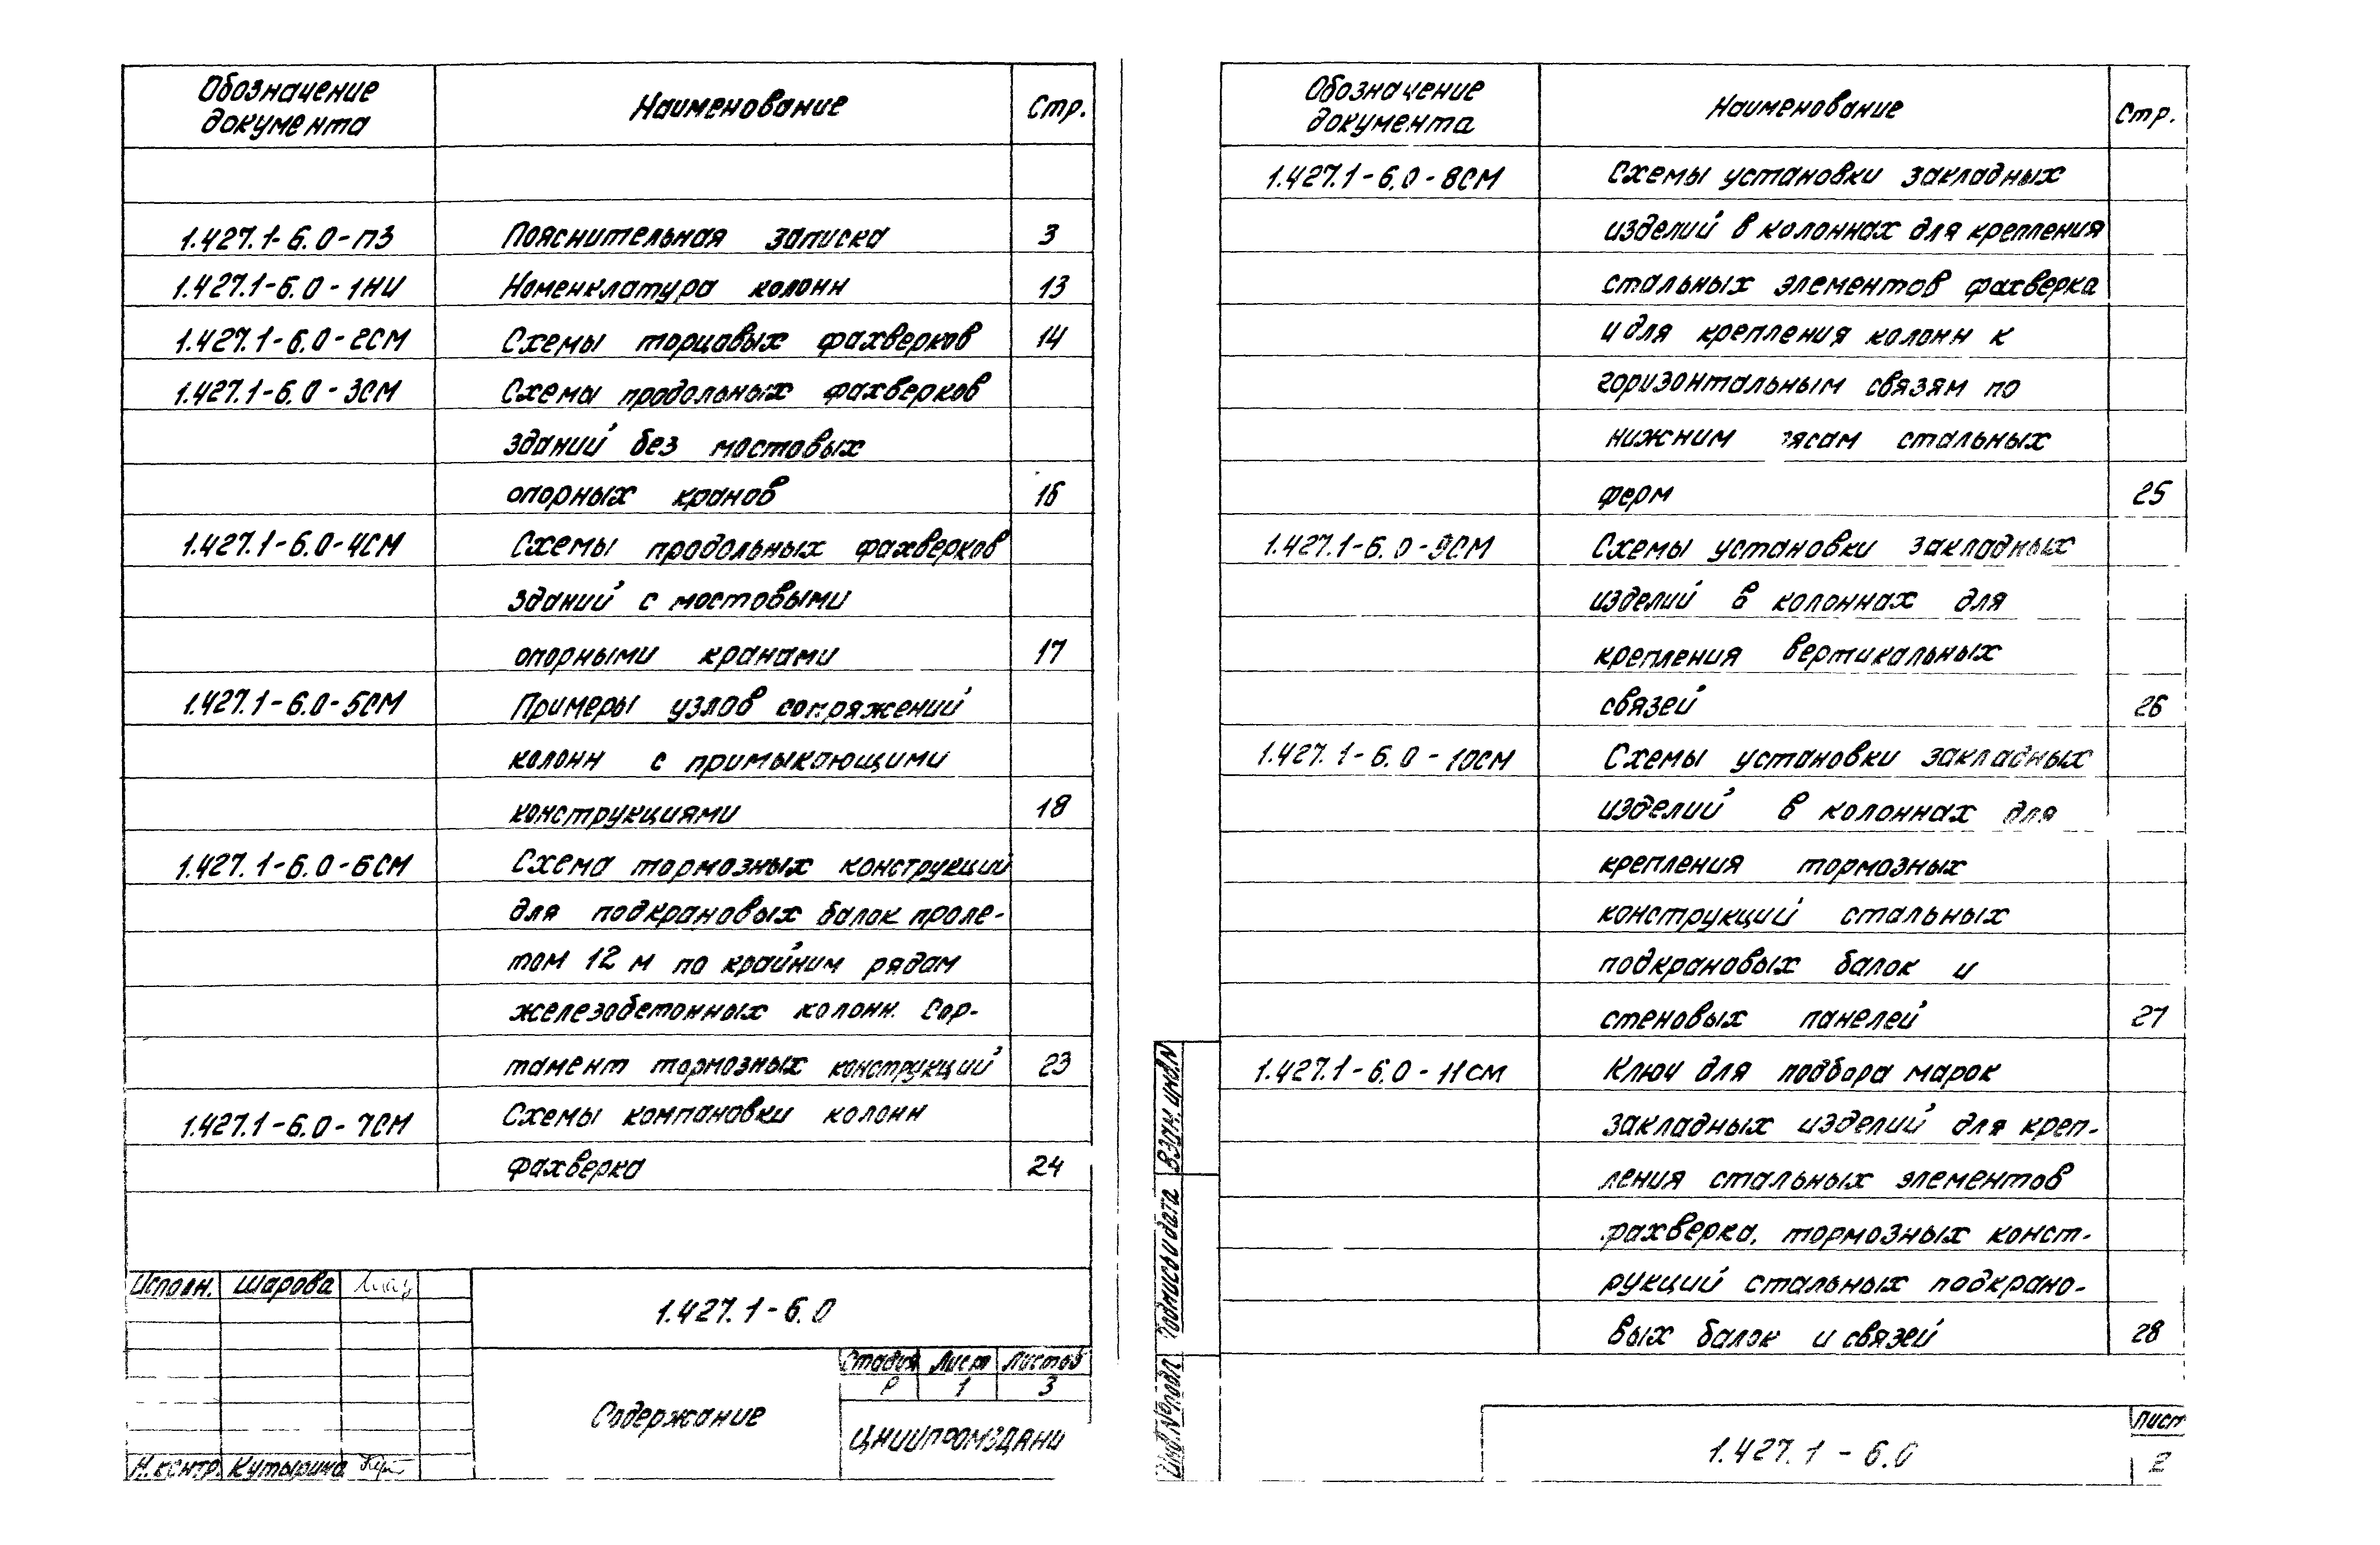 Обозначение документа Наименование Стр.
1.427.1-6.0-ПЗ Пояснительная записка 3
1.427.1-6.0-1НИ Номенклатура колонн 13
1.427.1-6.0-2СМ Схемы торцовых фахверков 14
1.427.1-6.0-3СМ Схемы продольных фахверков
зданий без мостовых
опорных кранов 16
1.427.1-6.0-4СМ Схемы продольных фахверков
зданий с мостовыми
опорными кранами 17
1.427.1-6.0-5СМ Примеры узлов сопряжений
колонн с примыкающими
конструкциями 18
1.427.1-6.0-6СМ Схема тормозных конструкций
для подкрановых балок проле-
том 12 м по крайним рядам
железобетонных колонн. Сор-
тамент тормозных конструкций 23
1.427.1-6.0-7СМ Схемы компановки колонн
фахверка 24
Исполн. Шарова
1.427.1-6.0
Содержание
Стадия Лист Листов
Р 1 3
ЦНИИПРОМЗДАНИ
Н.контр. Кутырина
Обозначение документа Наименование Стр.
1.427.1-6.0-8СМ Схемы установки закладных
изделий в колоннах для крепления
стальных элементов фахверка
и для крепления колонн к
горизонтальным связям по
нижним ясам стальных
ферм 25
1.427.1-6.0-9СМ Схемы установки закладных
изделий в колоннах для
крепления вертикальных
связей 26
1.427.1-6.0-10СМ Схемы установки закладных
изделий в колоннах для
крепления тормозных
конструкций стальных
подкрановых балок и
стеновых панелей 27
1.427.1-6.0-11СМ Ключ для подбора марок
закладных изделий для креп-
ления стальных элементов
фахверка, тормозных конст-
рукций стальных подкрано-
вых балок и связей 28
Взам. инв.N
Подпись и дата
Инв.Nº подл
1.427.1-6.0
Лист
2